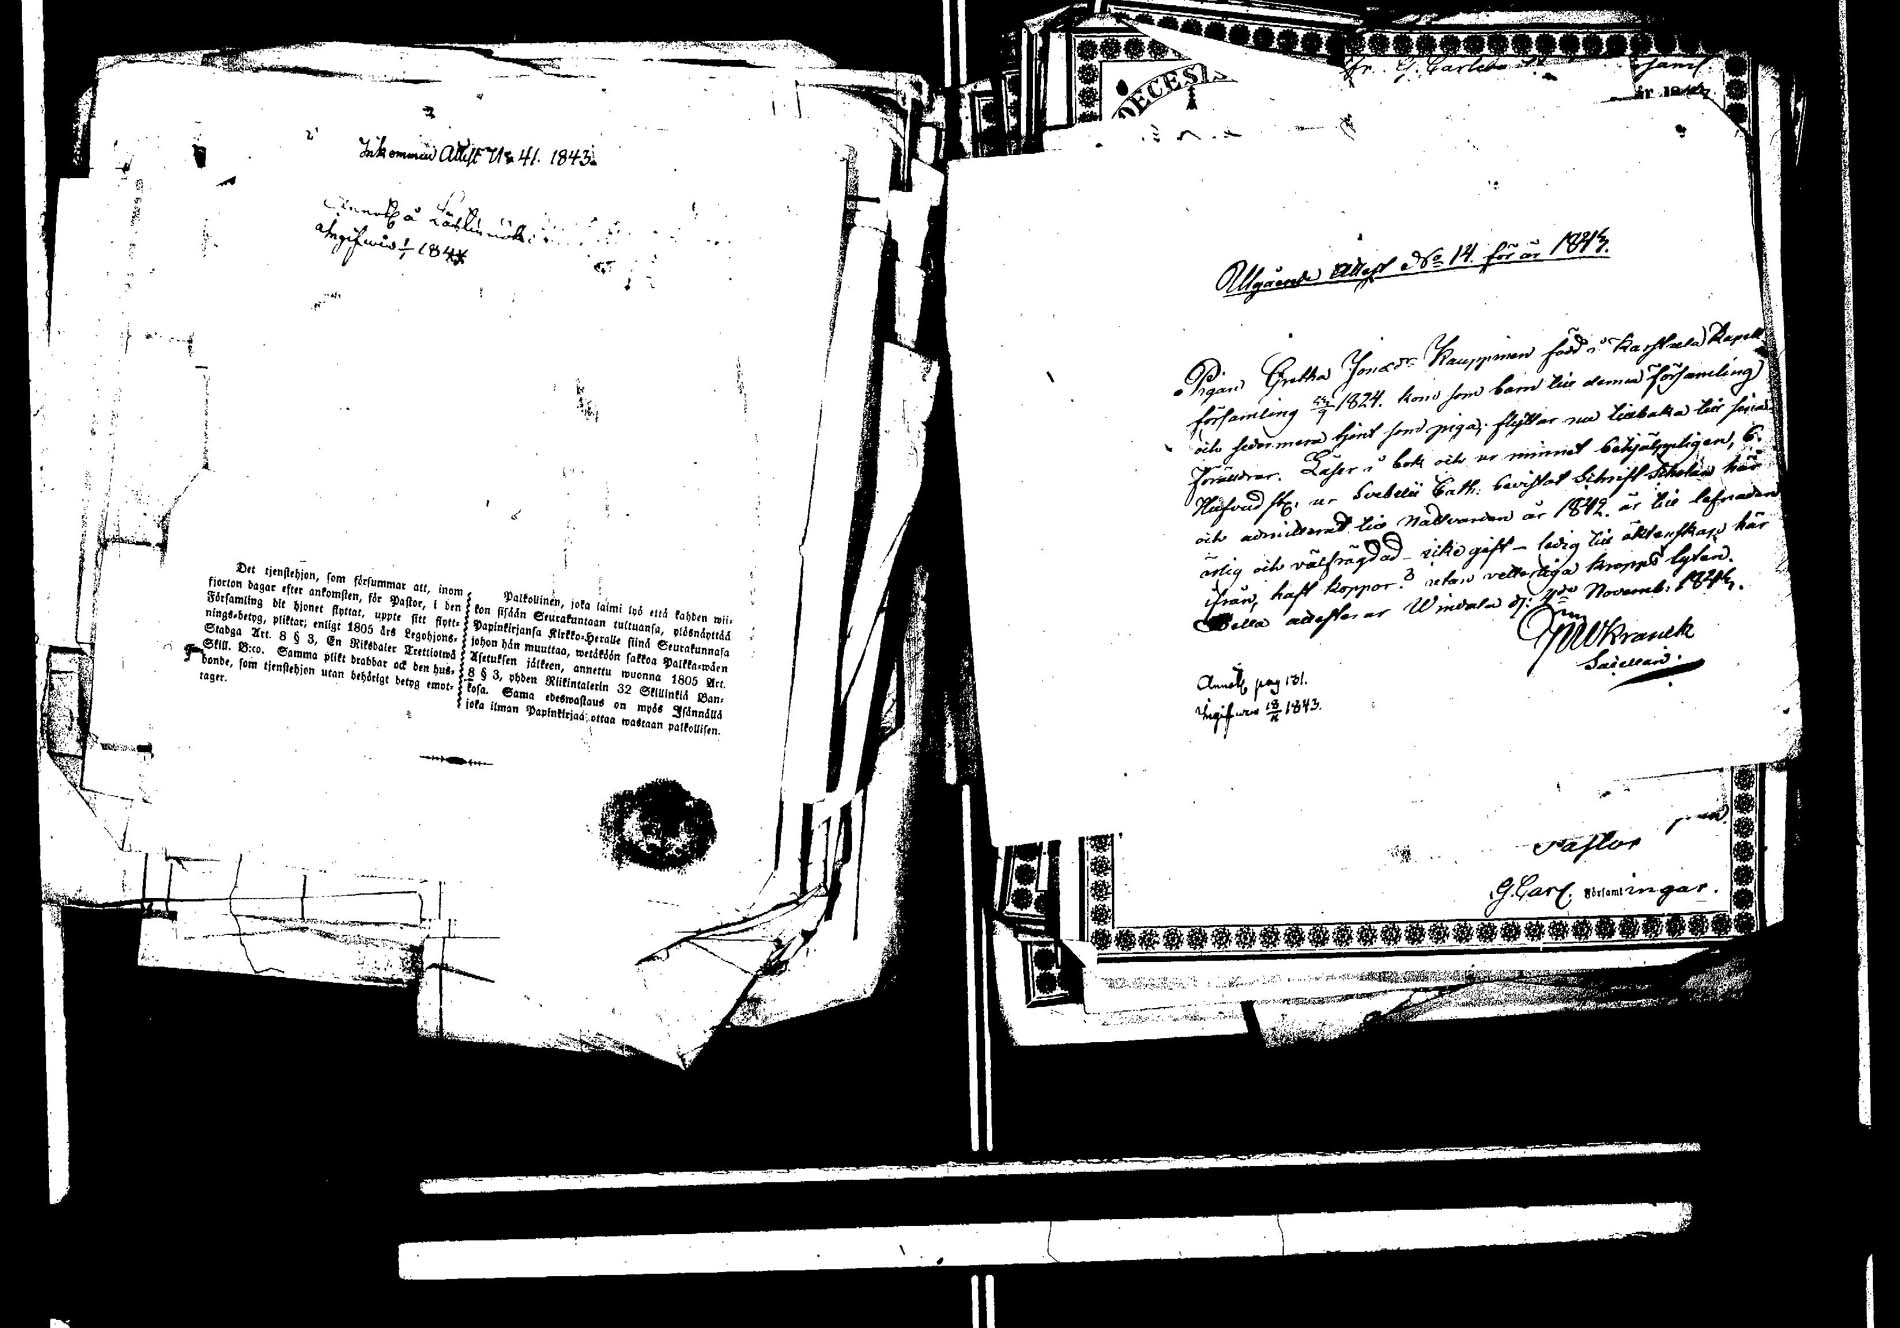 Inkommen Attest No 41. 1843.
Annoterad å
Ingifven 1/1 184
Det tjenstehjon, som försummar att, inom
fjorton dagar efter ankomsten, för Pastor, i den
Församling dit hjonet flyttat, uppte sitt flytt-
nings-betyg, pliktar, enligt 1805 års Legohjons-
Stadga Art. 8 § 3, En Riksdaler Trettiotwå
Skill. B:co. Samma plikt drabbar ock den hus-
bonde, som tjenstehjon utan behörigt betyg emot-
tager.
Palkollinen, joka laimi lyö että kahden wii-
kon sisään Seurakuntaan tultuansa, ylösnäyttää
Papinkirjansa Kirkko-Herralle siinä Seurakunnasa
johon hän muuttaa, wetäköön sakkoa Palkka-wäen
Asetuksen jälkeen, annettu wuonna 1805 Art.
8 § 3, yhden Riikintalerin 32 Skillinkiä Ban-
kosa. Sama edeswastaus on myös Isännällä
joka ilman Papinkirjaa ottaa wastaan palkollisen.
DECESI
fr. G. Carleby
år 184
Utgående Attest No 14. för år 1843.
Pigan Gretha Jonasdr Kauppinen född i Karstula Kapell
församling 1824. kom som barn till denna Församling
och sedermera tjent som piga, flyttar nu tillbaka till sina
Föräldrar. Läser i bok och ur minnet behjälpeligen, 6.
Hufvud st. ur Svebelii Cath. bevistat Schrift Scholan här
och admitterad till Nattvarden år 1842. är till lefnaden
ärlig och välfrägdad - icke gift - ledig till äktenskap här
ifrån, haft koppor & utan vetterliga kropps lyten.
Detta attesterar Windala d. Novemb. 1843.
Kranck
Sacellan.
Annot. pag 131.
Ingifven 1843.
Pastor
G. Carl. Församlingar.